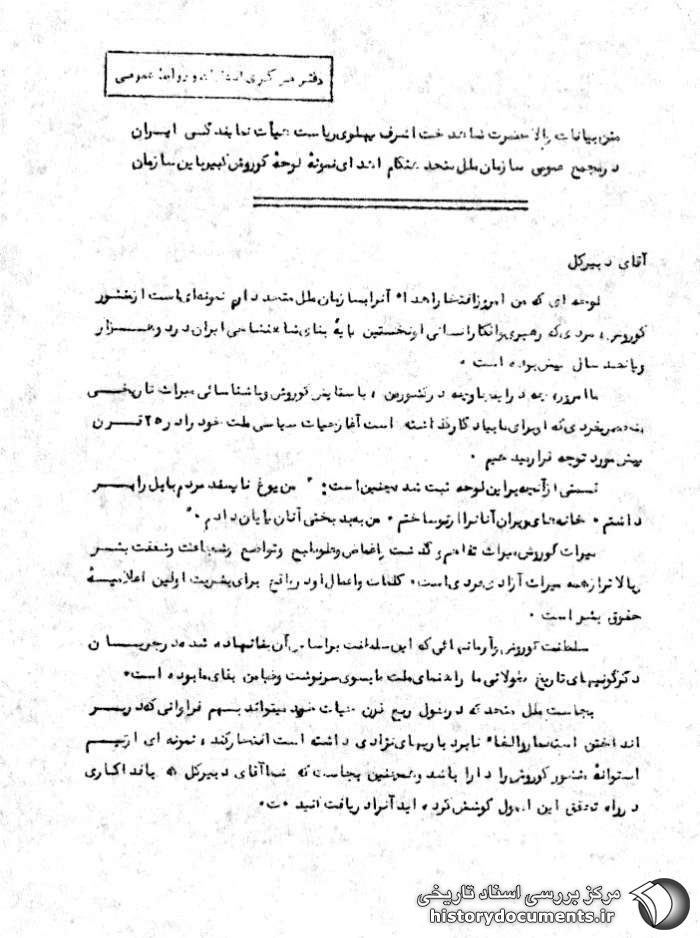 دفتر مرکزی انتشارات و روابط عمومی
متن بیانات والاحضرت شاهدخت اشرف پهلوی ریاست هیأت نمایندگی ایران
در مجمع عمومی سازمان ملل متحد هنگام اهدای نمونهٔ لوحهٔ کوروش کبیر باین سازمان
آقای دبیرکل
لوحه ای که من امروز افتخار اهداء آنرا بسازمان ملل متحد دارم نمونه‌ای است از منشور
کوروش، مردی که رهبری و انکار انسانی او نخستین پایهٔ بنای شاهنشاهی ایران در دو هزار
و پانصد سال پیش بوده است.
ما امروزه چه در اینجا و چه در کشورمن، با ستایش کوروش و با شناسائی میراث تاریخی
منحصر بفردی که او برای ما بیادگار گذاشته است آغاز حیات سیاسی ملت خود را در ۲۵ قرن
پیش مورد توجه قرار میدهیم.
قسمتی از آنچه بر این لوحه ثبت شده چنین است: " من یوغ ناپسند مردم بابل را بر
داشتم. خانه‌های ویران آنانرا از نو ساختم. من به بدبختی آنان پایان دادم."
میراث کوروش میراث تفاهم و گذشت و اغماض و تواضع و شجاعت و شفقت بشر
و بالاتر از همه میراث آزادی فردی است. کلمات و اعمال او در واقع برای بشریت اولین اعلامیهٔ
حقوق بشر است.
سلطنت کوروش و آرمانهائی که این سلطنت بر اساس آن بنا نهاده شده در جریان
دگرگونیهای تاریخ طولانی ما راهنمای ملت ما بسوی سرنوشت و ضامن بقای ما بوده است.
بجاست ملل متحد که در طول ربع قرن حیات خود میتواند بسهم فراوانی که در بر
انداختن استعمار و الغاء نابرابریهای نژادی داشته است افتخار کند، نمونه ای از نیم
استوانهٔ منشور کوروش را دارا باشد و همچنین بجاست که شما آقای دبیرکل که با فداکاری
در راه تحقق این اصول کوشش کرده اید آنرا دریافت کنید.
مرکز بررسی اسناد تاریخی
historydocuments.ir